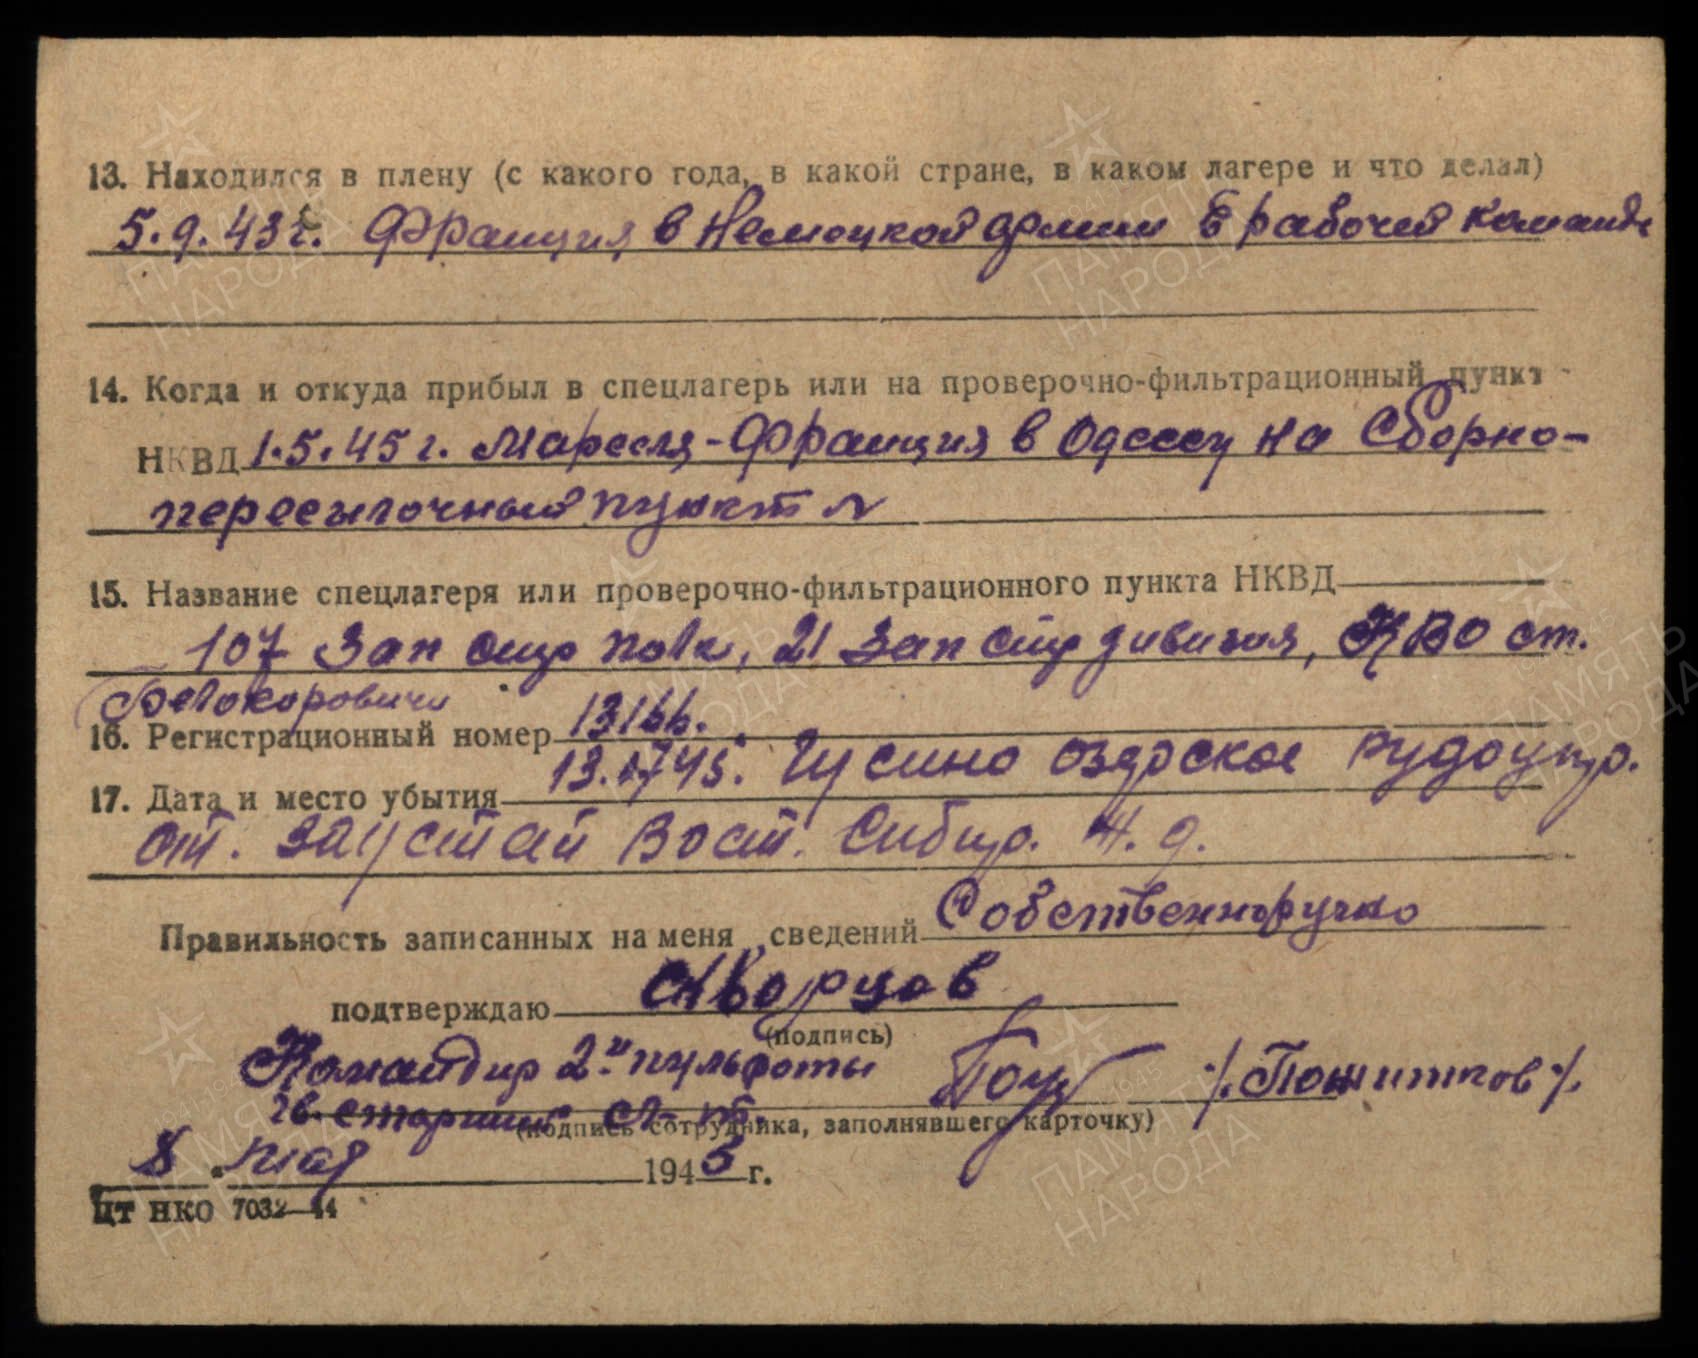 13. Находился в плену (с какого года, в какой стране, в каком лагере и что делал)
5.9.43 г. Франция в Немецкой армии В рабочей команде
14. Когда и откуда прибыл в спецлагерь или на проверочно-фильтрационный пункт
НКВД 1.5.45 г. Марселя-Франция в Одессу на Сборно-
пересылочный пункт
15. Название спецлагеря или проверочно-фильтрационного пункта НКВД
107 Зап стр полк, 21 Зап стр дивизия, КВО ст.
Белокоровичи
16. Регистрационный номер 13166.
17. Дата и место убытия 13. 45. Гусино озерское рудоупр.
ст. Заустай Вост. Сибир. ж. д.
Правильность записанных на меня сведений Собственноручно
подтверждаю Скворцов
(подпись)
Командир 2й пульроты /. Пожитков ./
гв. старший с-т.
(подпись сотрудника, заполнявшего карточку)
8 " мая 1945 г.
ЦТ НКО 7032—44
ПАМЯТЬ НАРОДА
1941-1945